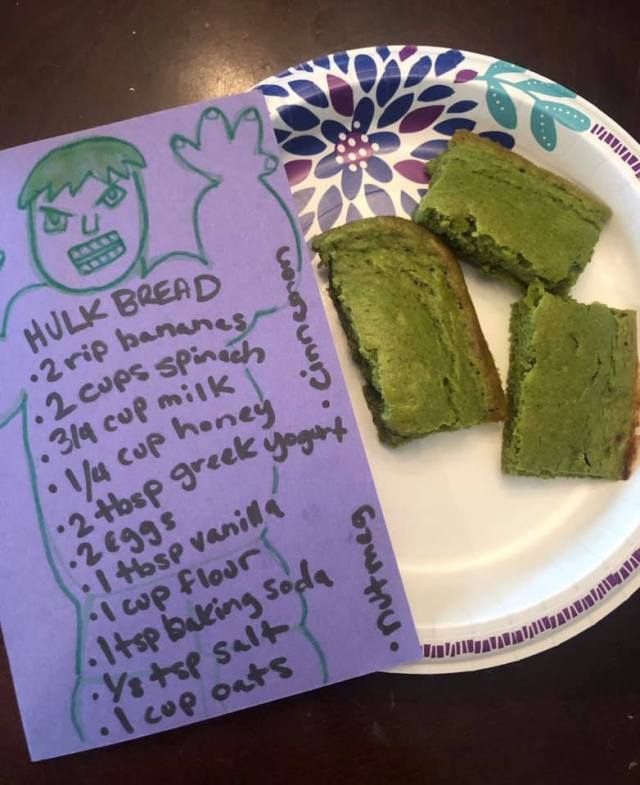 HULK BREAD
• 2 rip bananas
• 2 cups spinach
• 3/4 cup milk
• 1/4 cup honey
• 2 tbsp greek yogurt
• 2 eggs
• 1 tbsp vanilla
• 1 cup flour
• 1 tsp baking soda
• 1/8 tsp salt
• 1 cup oats
• cinnamon
• nutmeg